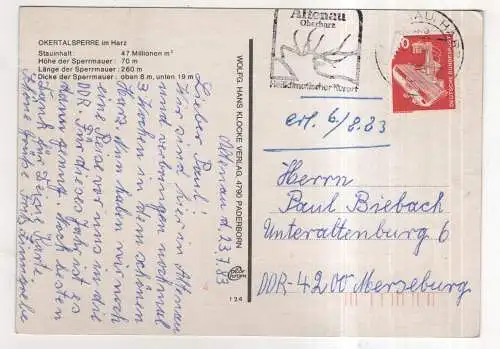 OKERTALSPERRE im Harz
Stauinhalt: 47 Millionen m³
Höhe der Sperrmauer: 70 m
Länge der Sperrmauer: 260 m
Dicke der Sperrmauer: oben 8 m, unten 19 m
WOLFG. HANS KLOCKE VERLAG, 4790 PADERBORN
124
Altenau
Oberharz
Heilklimatischer Kurort
DEUTSCHE BUNDESPOST
erh. 6/8.83
Herrn
Paul Biebach
Unteraltenburg 6
DDR-4200 Merseburg
Altenau d. 23.7.83
Lieber Paul!
Wir sind hier in Altenau
und verbringen nochmal
3 Wochen in dem schönen
Harz. Nun haben wir noch
eine Reise vor uns in die
DDR. Für dieses Jahr ist es
dann genug. Hab besten
Dank für Deine Karte.